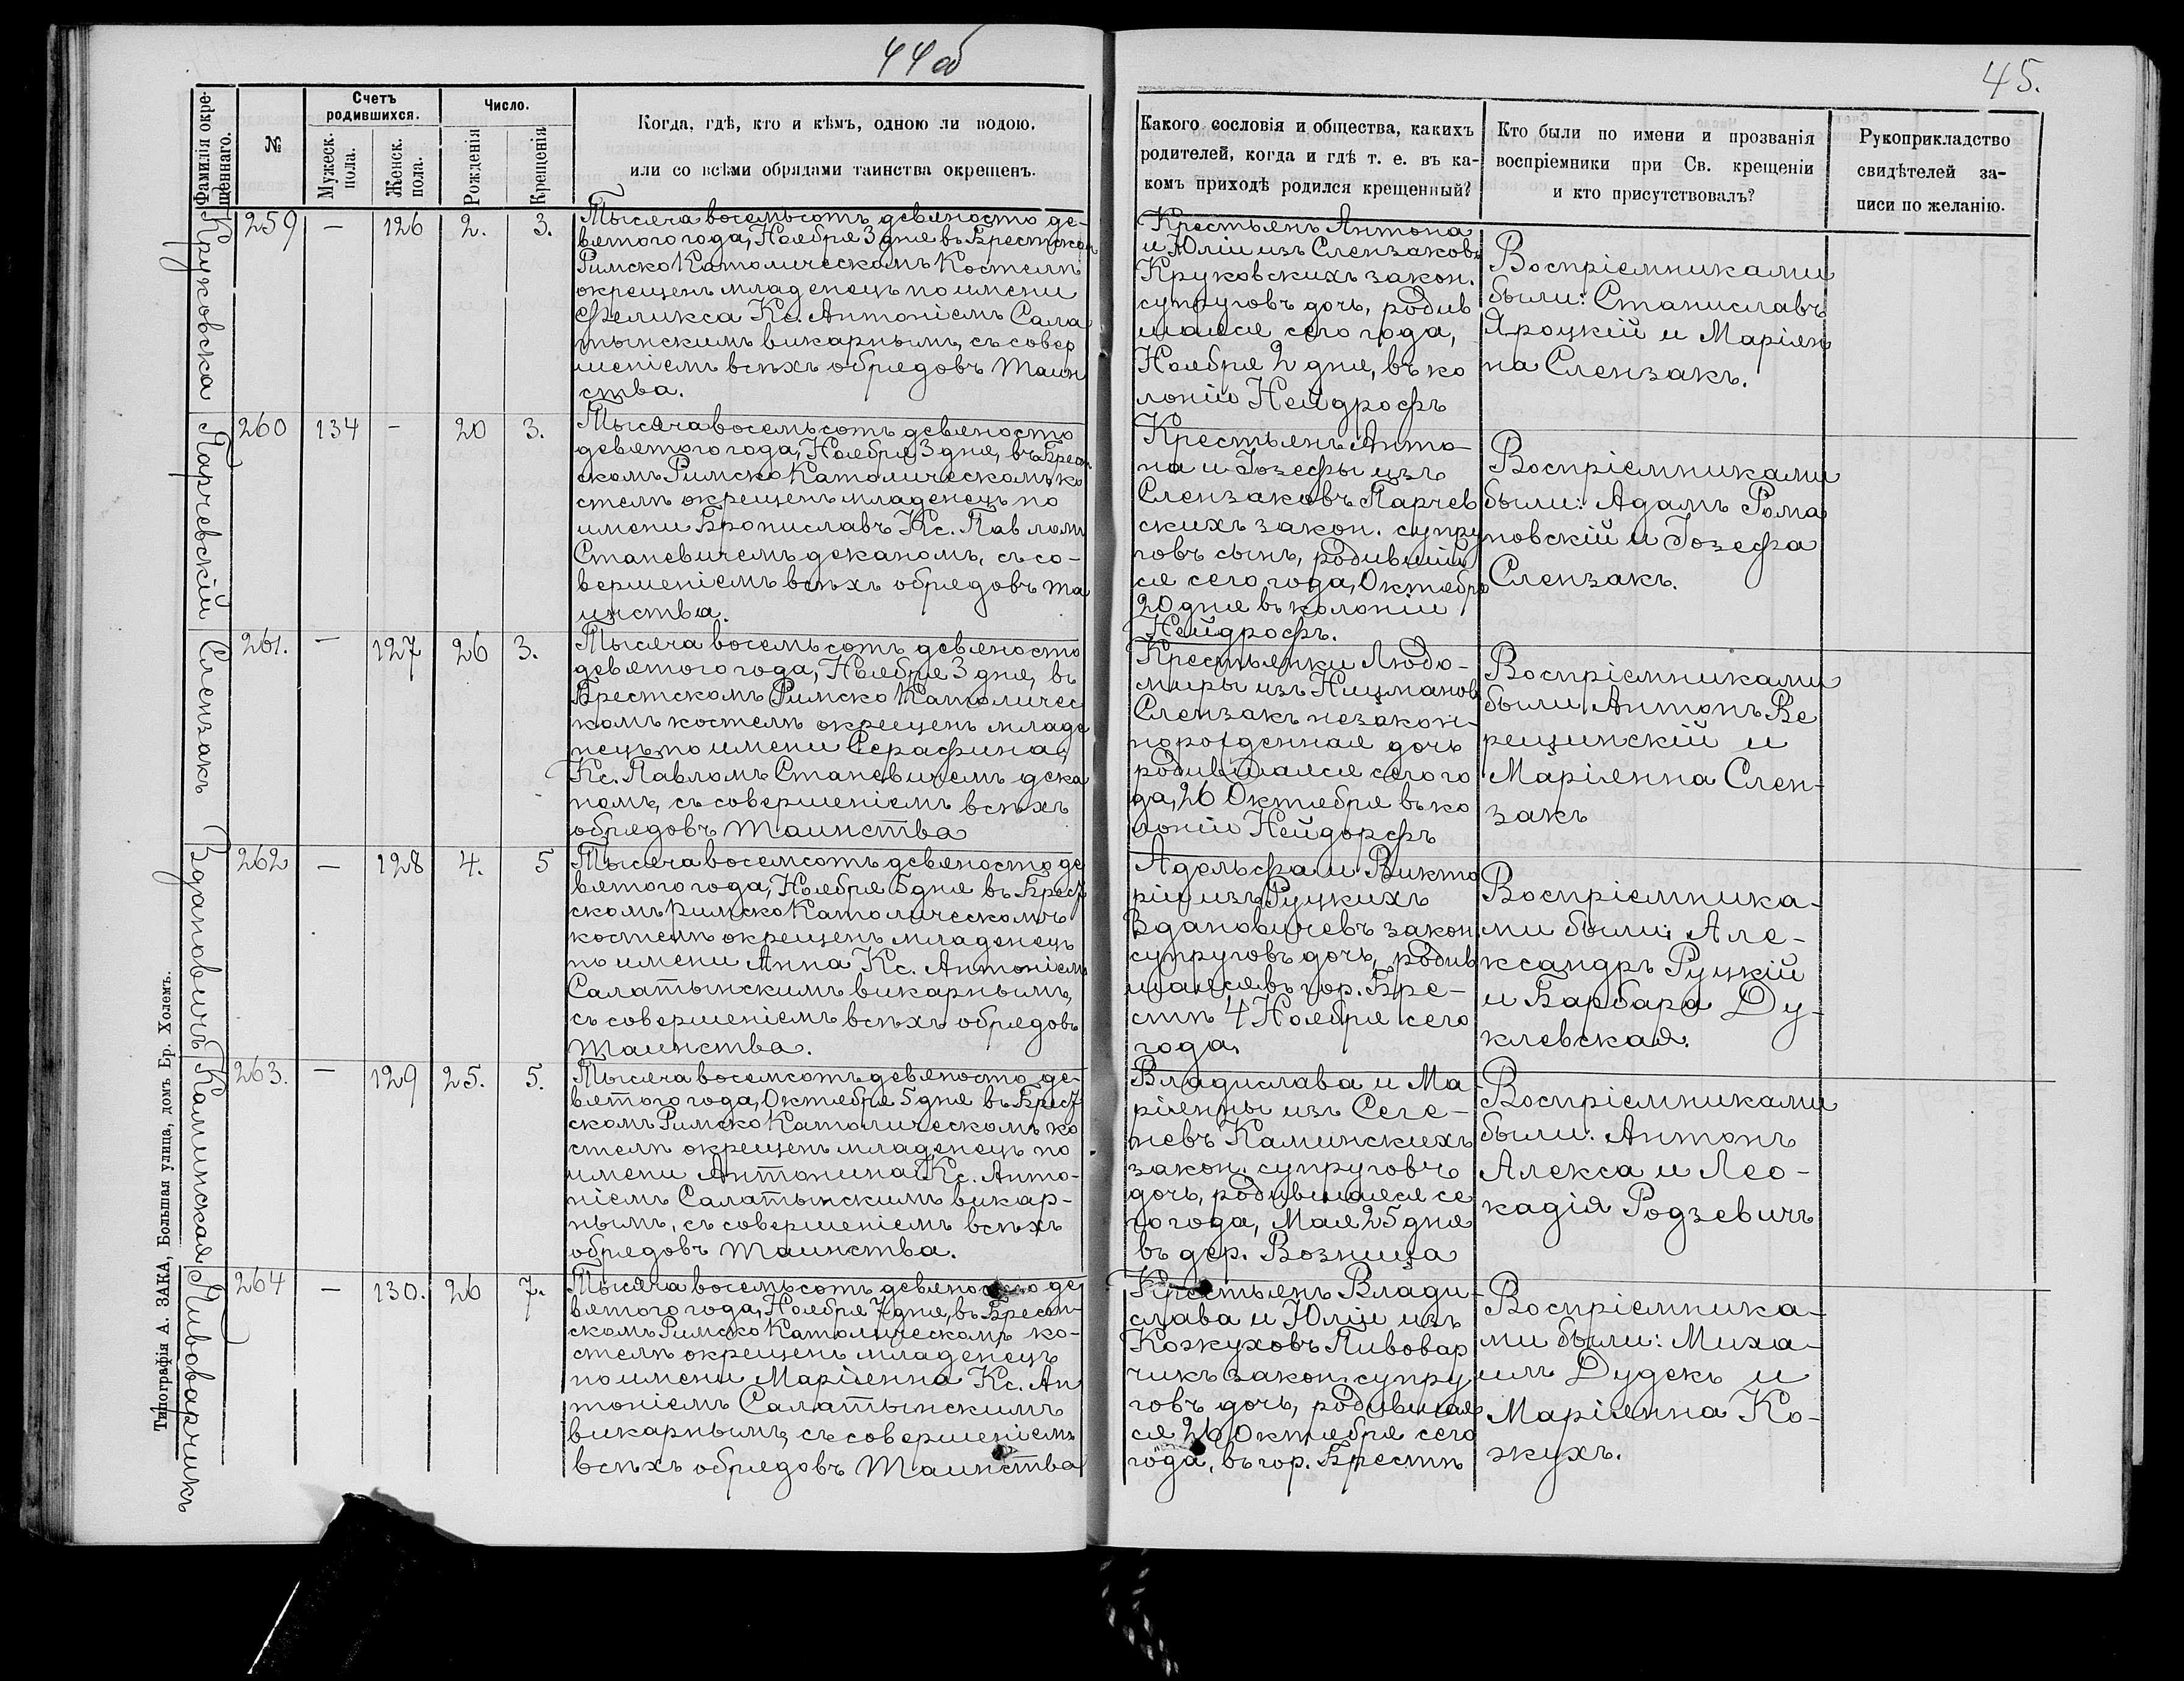 44об
45.
Фамилія окре-
щеннаго.
№
Счетъ
родившихся.
Мужеск.
пола.
Женск.
пола.
Число.
Рожденія
Крещенія
Когда, гдѣ, кто и кѣмъ, одною ли водою,
или со всѣми обрядами таинства окрещенъ.
Какого сословія и общества, какихъ
родителей, когда и гдѣ т. е. въ ка-
комъ приходѣ родился крещенный?
Кто были по имени и прозванія
воспріемники при Св. крещеніи
и кто присутствовалъ?
Рукоприкладство
свидѣтелей за-
писи по желанію.
Круковска
259 — 126 2. 3.
Тысяча восемьсотъ девяносто де-
вятого года, Ноября 3 дня въ Брестском
Римско Католическомъ Костелѣ
окрещенъ младенецъ по имени
Феликса Кс. Антоніемъ Сала
тынскимъ викарнымъ, съ совер
шеніемъ всѣхъ обрядовъ Таин
ства.
Крестьянъ Антона
и Юліи изъ Слензаковъ
Круковскихъ закон.
супруговъ дочь, родив
шаяся сего года,
Ноября 2 дня, въ ко
лоніи Нейдрофъ
Воспріемниками
были: Станиславъ
Яроцкій и Маріян
на Слензакъ.
Парчевскій
260 134 — 20 3.
Тысяча восемьсотъ девяносто
девятого года, Ноября 3 дня, въ Брест
скомъ Римско Католическомъ ко
стелѣ окрещенъ младенецъ по
имени Брониславъ Кс. Павломъ
Станевичемъ деканомъ, съ со-
вершеніемъ всѣхъ обрядовъ та
инства.
Крестьянъ Анто-
на и Іозефы изъ
Слензаковъ Парчев
скихъ закон. супру
говъ сынъ, родившій
ся сего года, Октября
20 дня въ колоніи
Нейдрофъ.
Воспріемниками
были: Адамъ Рома
новскій и Іозефа
Слензакъ.
Слензакъ
261. — 127 26 3.
Тысяча восемьсотъ девяносто
девятого года, Ноября 3 дня, въ
Брестскомъ Римско Католичес
комъ костелѣ окрещенъ младе
нецъ по имени Серафина,
Кс. Павломъ Станевичемъ дека
номъ, съ совершеніемъ всѣхъ
обрядовъ Таинства
Крестьянки Людо-
миры изъ Ницмановъ
Слензакъ незакон-
норожденная дочь
родившаяся сего го
да, 26 Октября въ ко
лоніи Нейдорфъ
Воспріемниками
были Антонъ Ве
рещинскій и
Маріянна Слен-
закъ
Вдановичъ
262 — 128 4. 5
Тысяча восемсотъ девяносто де
вятого года, Ноября 5 дня въ Брест
скомъ Римско Католическомъ
костелѣ окрещенъ младенецъ
по имени Анна Кс. Антоніемъ
Салатынскимъ викарнымъ,
съ совершеніемъ всѣхъ обрядовъ
Таинства.
Адольфа и Викто
ріи изъ Руцкихъ
Вдановичевъ закон.
супруговъ дочь, родив
шаяся въ гор. Бре-
стѣ 4 Ноября сего
года.
Воспріемника-
ми были: Але-
ксандръ Руцкій
и Барбара Ду-
клевская.
Каминская
263. — 129 25. 5.
Тысяча восемсотъ девяносто де-
вятого года, Октября 5 дня въ Брест
скомъ Римско Католическомъ ко
стелѣ окрещенъ младенецъ по
имени Антонина Кс. Анто-
ніемъ Салатынскимъ викар-
нымъ, съ совершеніемъ всѣхъ
обрядовъ Таинства.
Владислава и Ма
ріянны изъ Сеге-
невъ Каминскихъ
закон. супруговъ
дочь, родившаяся се
го года, Мая 25 дня
въ дер. Возница
Воспріемниками
были: Антонъ
Алекса и Лео-
кадія Родзевичъ
Пивоварчикъ
264 — 130. 26 7.
Тысяча восемьсотъ девяносто де
вятого года, Ноября 7 дня, въ Брест-
скомъ Римско Католическомъ ко-
стелѣ окрещенъ младенецъ
по имени Маріянна Кс. Ан
тоніемъ Салатынскимъ
викарнымъ, съ совершеніемъ
всѣхъ обрядовъ Таинства
Крестьянъ Влади-
слава и Юліи изъ
Кожуховъ Пивовар
чикъ закон. супру
говъ дочь, родившая
ся 26 Октября сего
года, въ гор. Брестѣ
Воспріемника-
ми были: Миха-
илъ Дудекъ и
Маріянна Ко-
жухъ.
Типографія А. ЗАКА, Большая улица, домъ Бр. Холемъ.